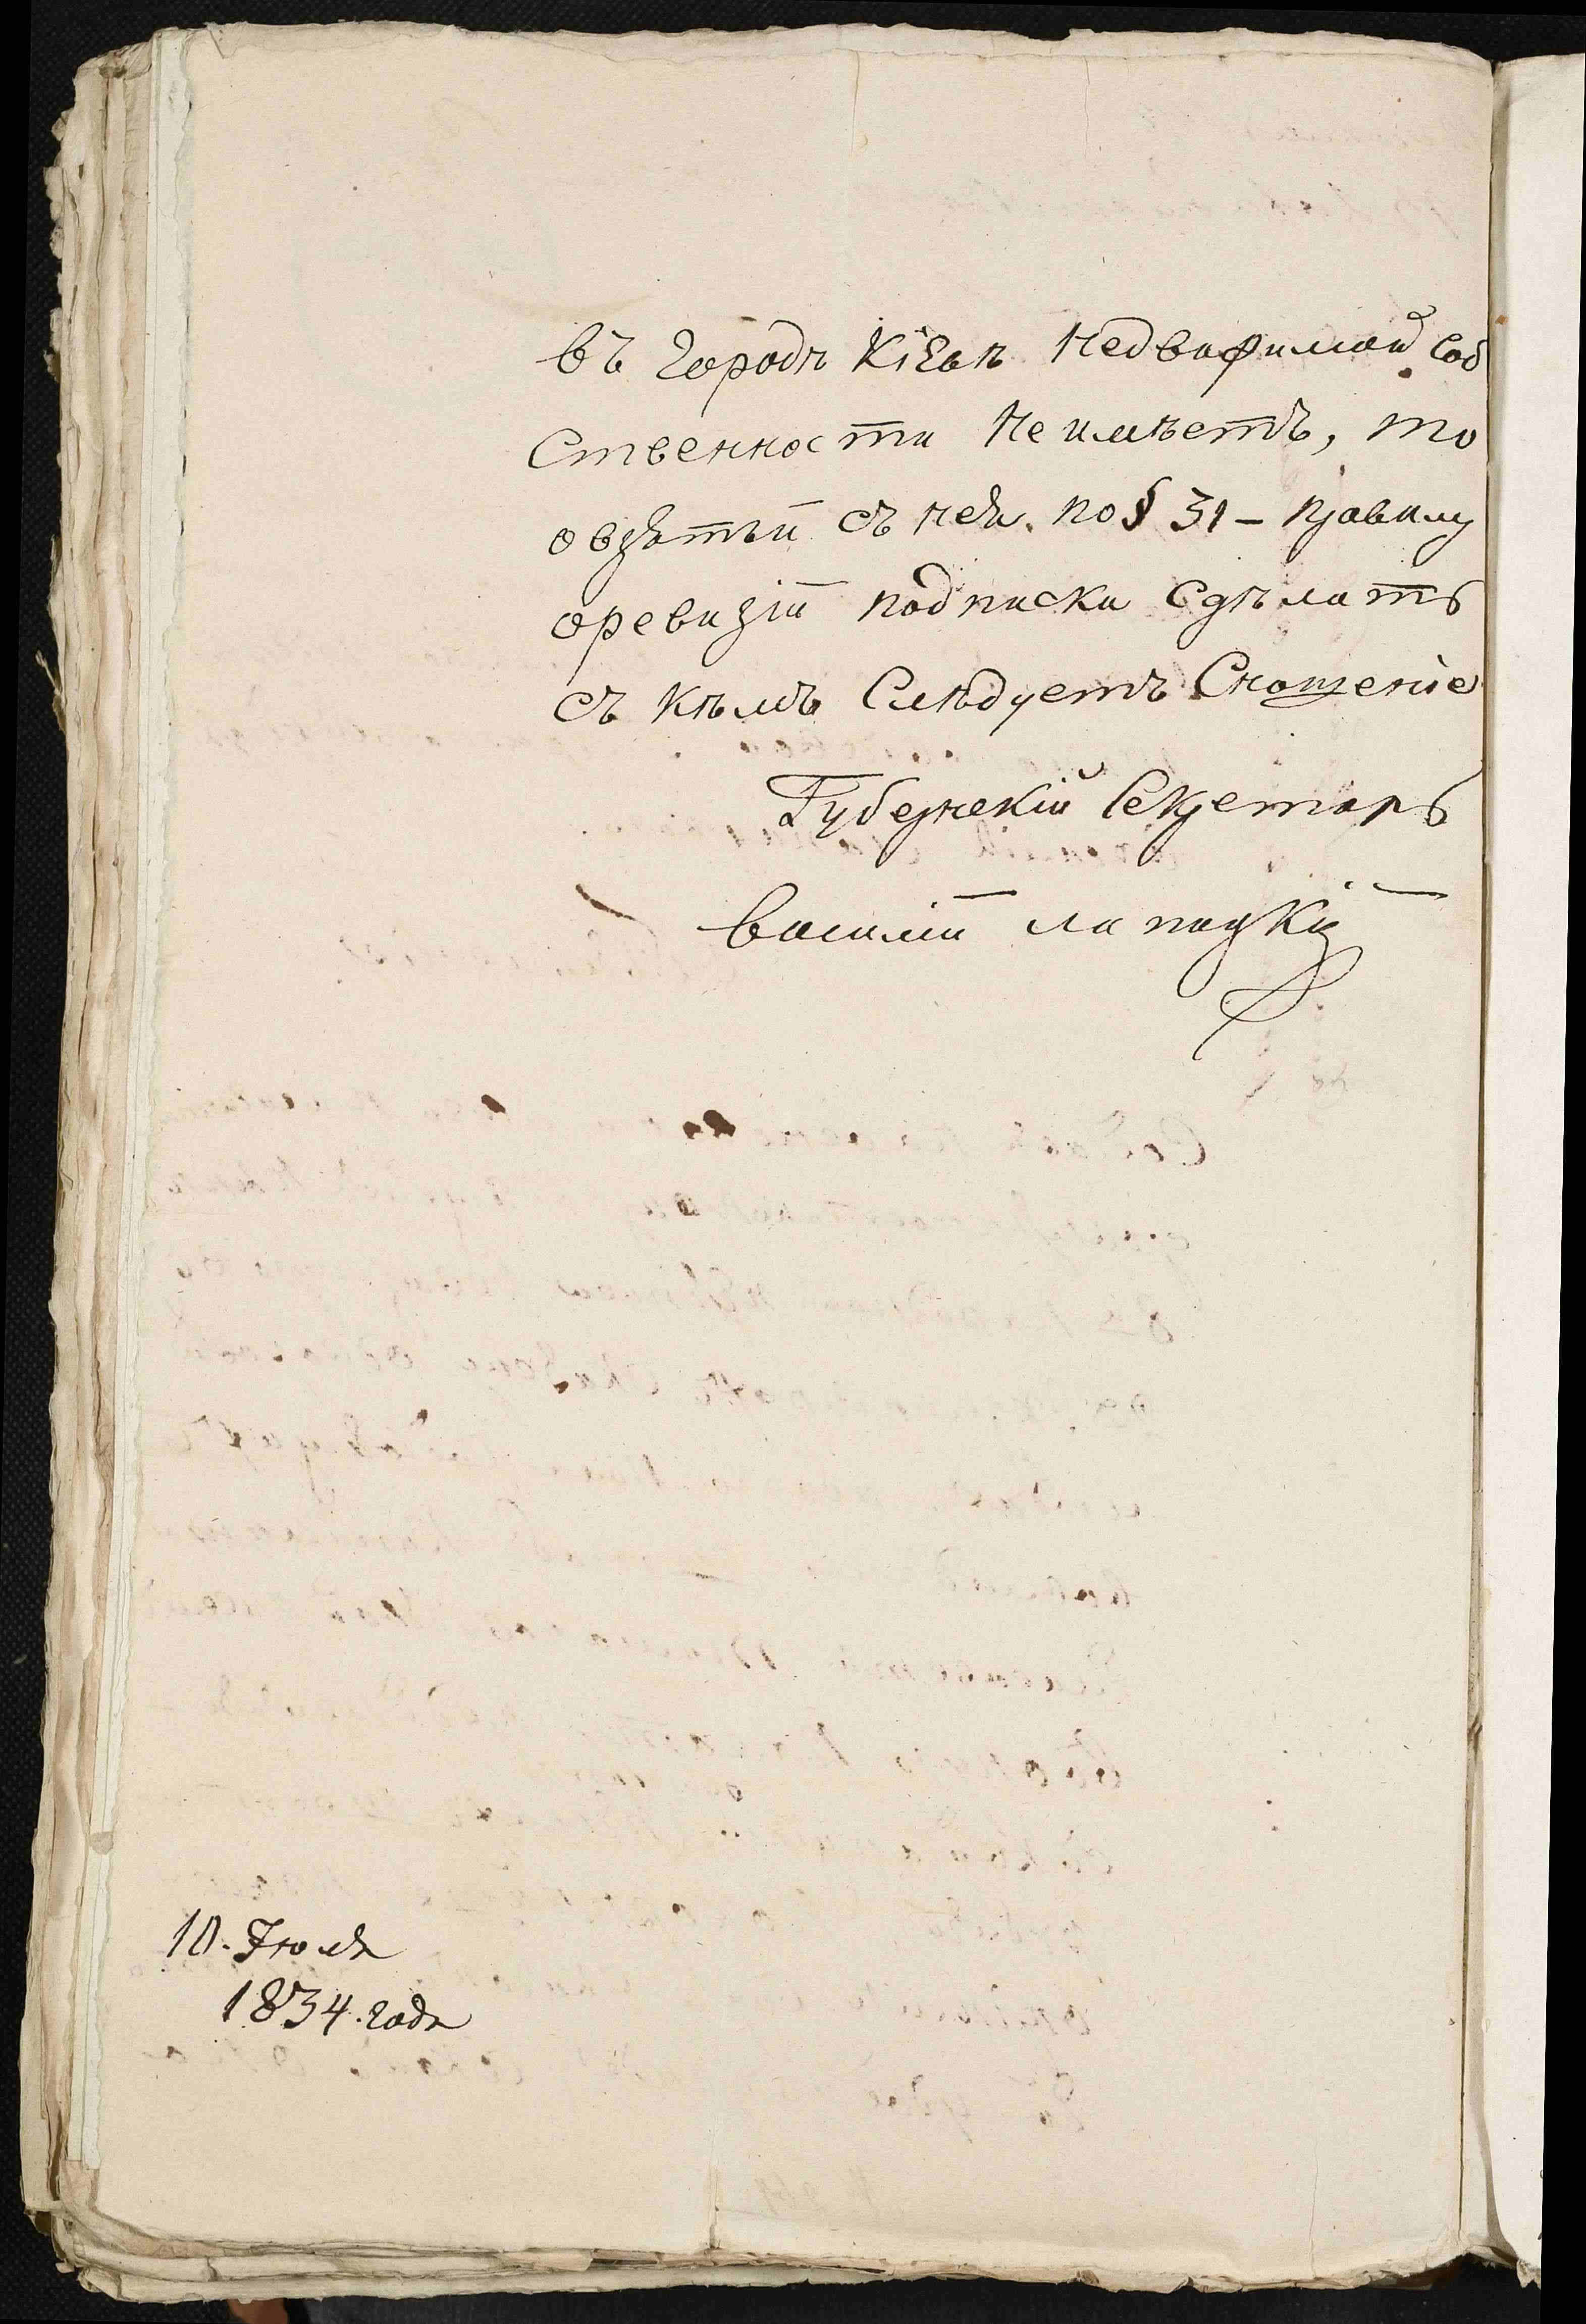 въ Городѣ Кіевѣ Недвижимой Соб
Ственности Неимѣетъ, то
овзятьи съ нея по § 31 - правилу
оревизіи подписки Сдѣлать
съ кѣмъ Слѣдуетъ Сношеніе
Губернскій Секретарь
василій лапицкій
10. Іюля
1834. года